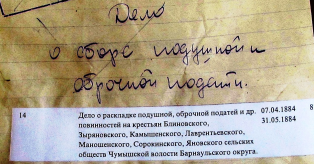 Дело
о сборе подушной и
оброчной подати.
14 Дело о раскладке подушной, оброчной податей и др. 07.04.1884 8
повинностей на крестьян Блиновского, 31.05.1884
Зыряновского, Камышенского, Лаврентьевского,
Маношенского, Сорокинского, Яновского сельских
обществ Чумышской волости Барнаульского округа.